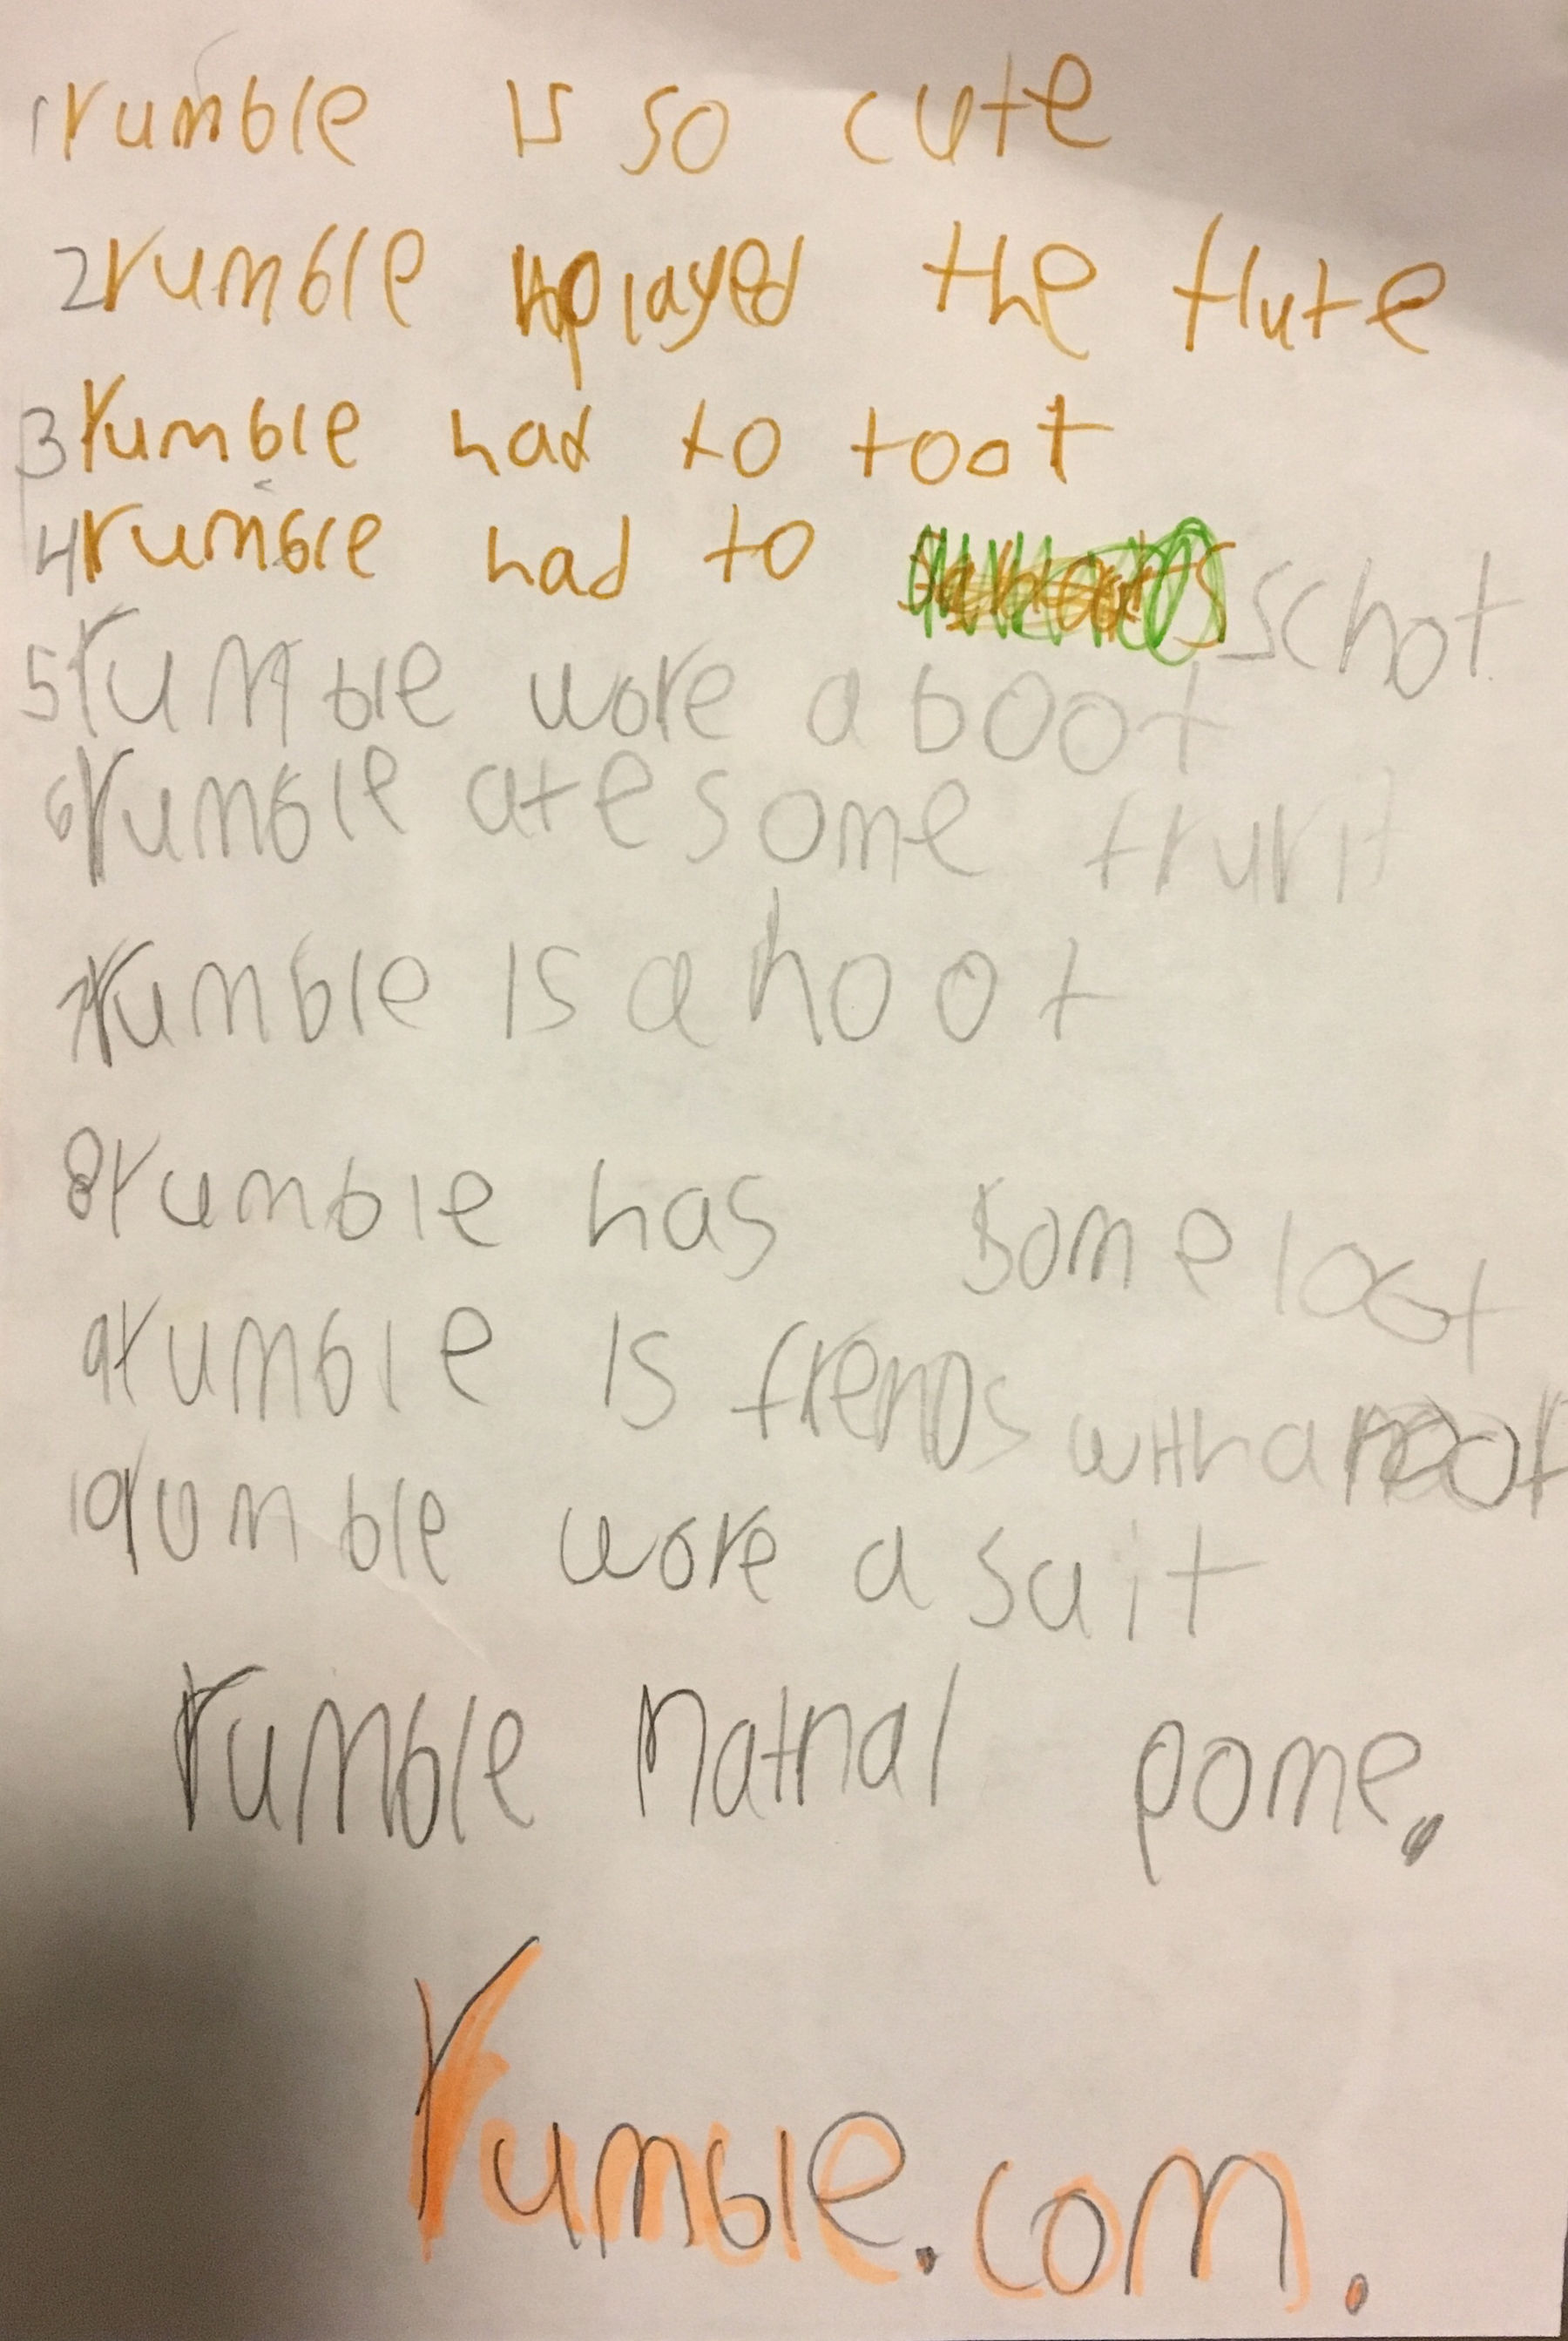 1 rumble is so cute
2 rumble played the flute
3 rumble had to toot
4 rumble had to schot
5 rumble wore a boot
6 rumble ate some frurit
7 rumble is a hoot
8 rumble has some loot
9 rumble is frends with a root
10 rumble wore a suit
rumble natnal pome.
rumble.com.